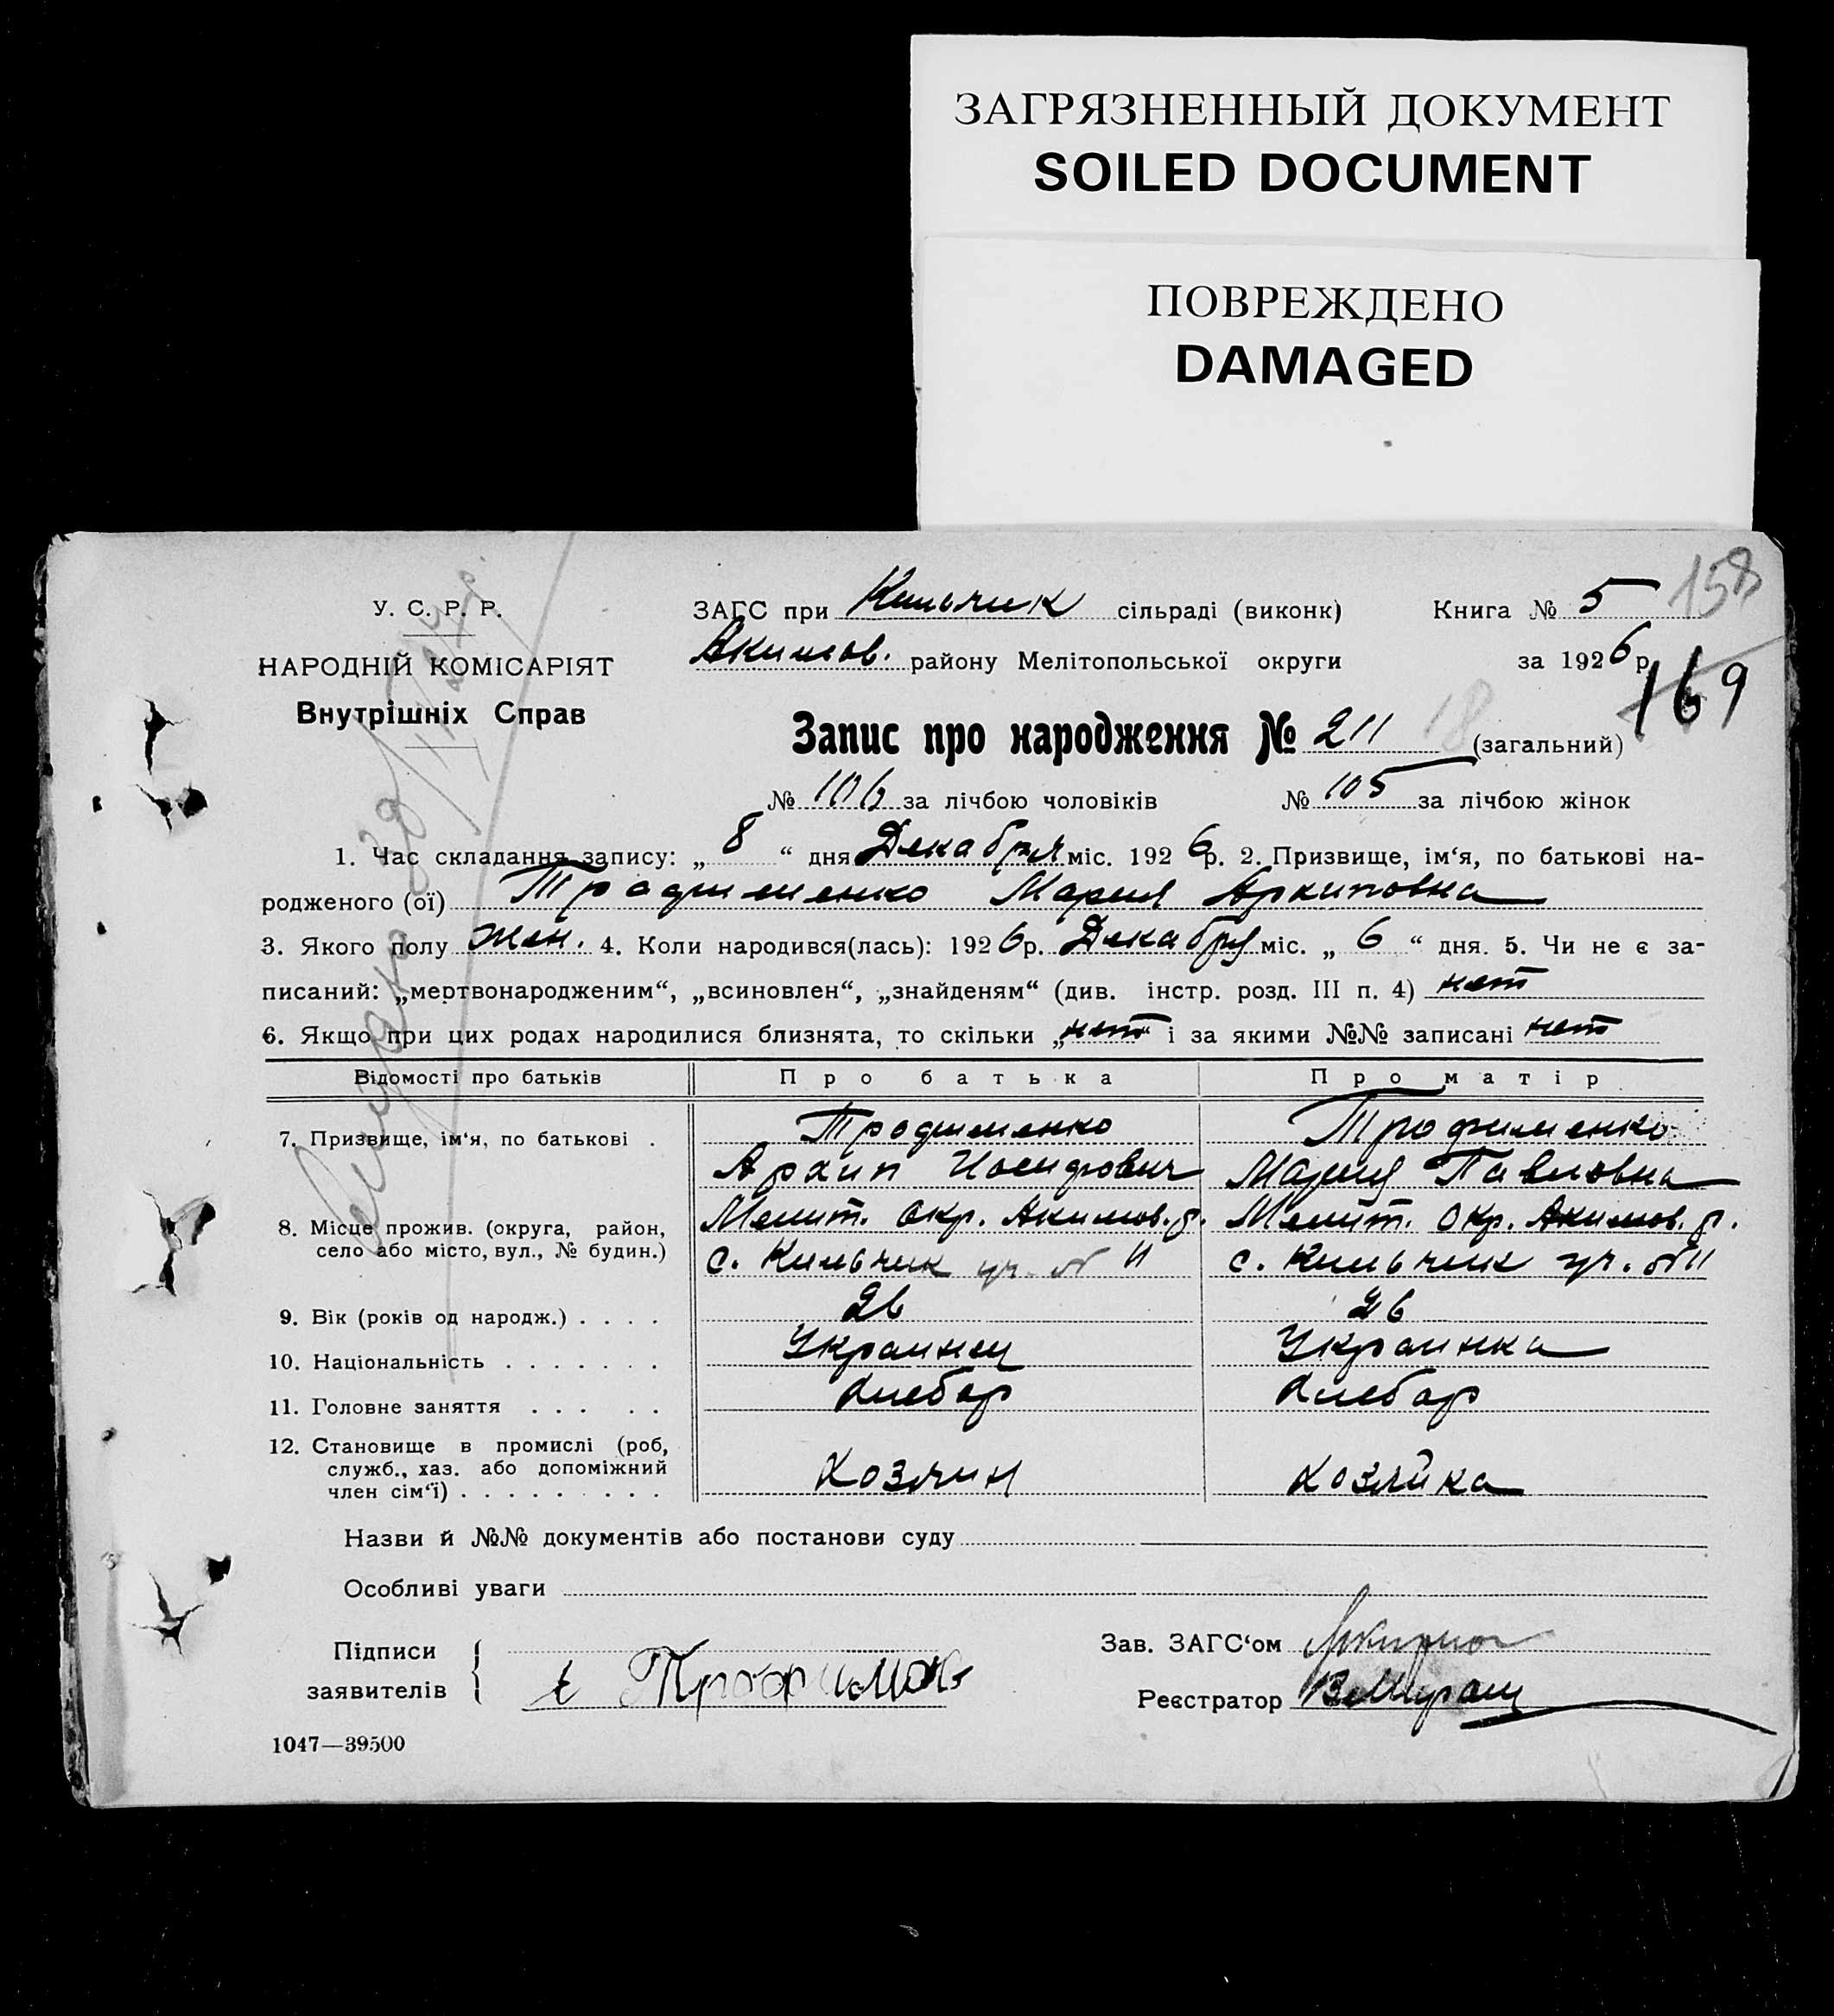 ЗАГРЯЗНЕННЫЙ ДОКУМЕНТ
SOILED DOCUMENT
ПОВРЕЖДЕНО
DAMAGED
158
У. С. Р. Р.
НАРОДНІЙ КОМІСАРІЯТ
Внутрішніх Справ
ЗАГС при Кильчик сільраді (виконк)
Книга № 5
Акимов. району Мелітопольської округи
за 1926 р.
169
Запис про народження № 211 18 (загальний)
№ 106 за лічбою чоловіків № 105 за лічбою жінок
1. Час складання запису: „ 8 “ дня Декабря міс. 1926 р. 2. Призвище, ім‘я, по батькові на-
родженого (ої) Трофименко Мария Архиповна
3. Якого полу жен. 4. Коли народився(лась): 1926 р. Декабря міс. „ 6 “ дня. 5. Чи не є за-
писаний: „мертвонародженим“, „всиновлен“, „знайденям“ (див. інстр. розд. III п. 4) нет
6. Якщо при цих родах народилися близнята, то скільки „нет“ і за якими №№ записані нет
Відомості про батьків Про батька Про матір
7. Призвище, ім‘я, по батькові . Трофименко Трофименко
Архип Иосифович Мария Павловна
8. Місце прожив. (округа, район, село або місто, вул., № будин.) Мелит. окр. Акимов. р. Мелит. окр. Акимов. р.
с. Кильчик уч. № 11 с. Кильчик уч. № 11
9. Вік (років од народж.) . . . . 26 26
10. Національність . . . . . . . Украинец Украинка
11. Головне заняття . . . . . Хлебор Хлебор
12. Становище в промислі (роб, служб., хаз. або допоміжний член сім‘ї) . . . . . . . . . Хозяин Хозяйка
Назви й №№ документів або постанови суду
Особливі уваги
Підписи заявителів
Трофимен
Зав. ЗАГС‘ом
Реєстратор
1047—39500